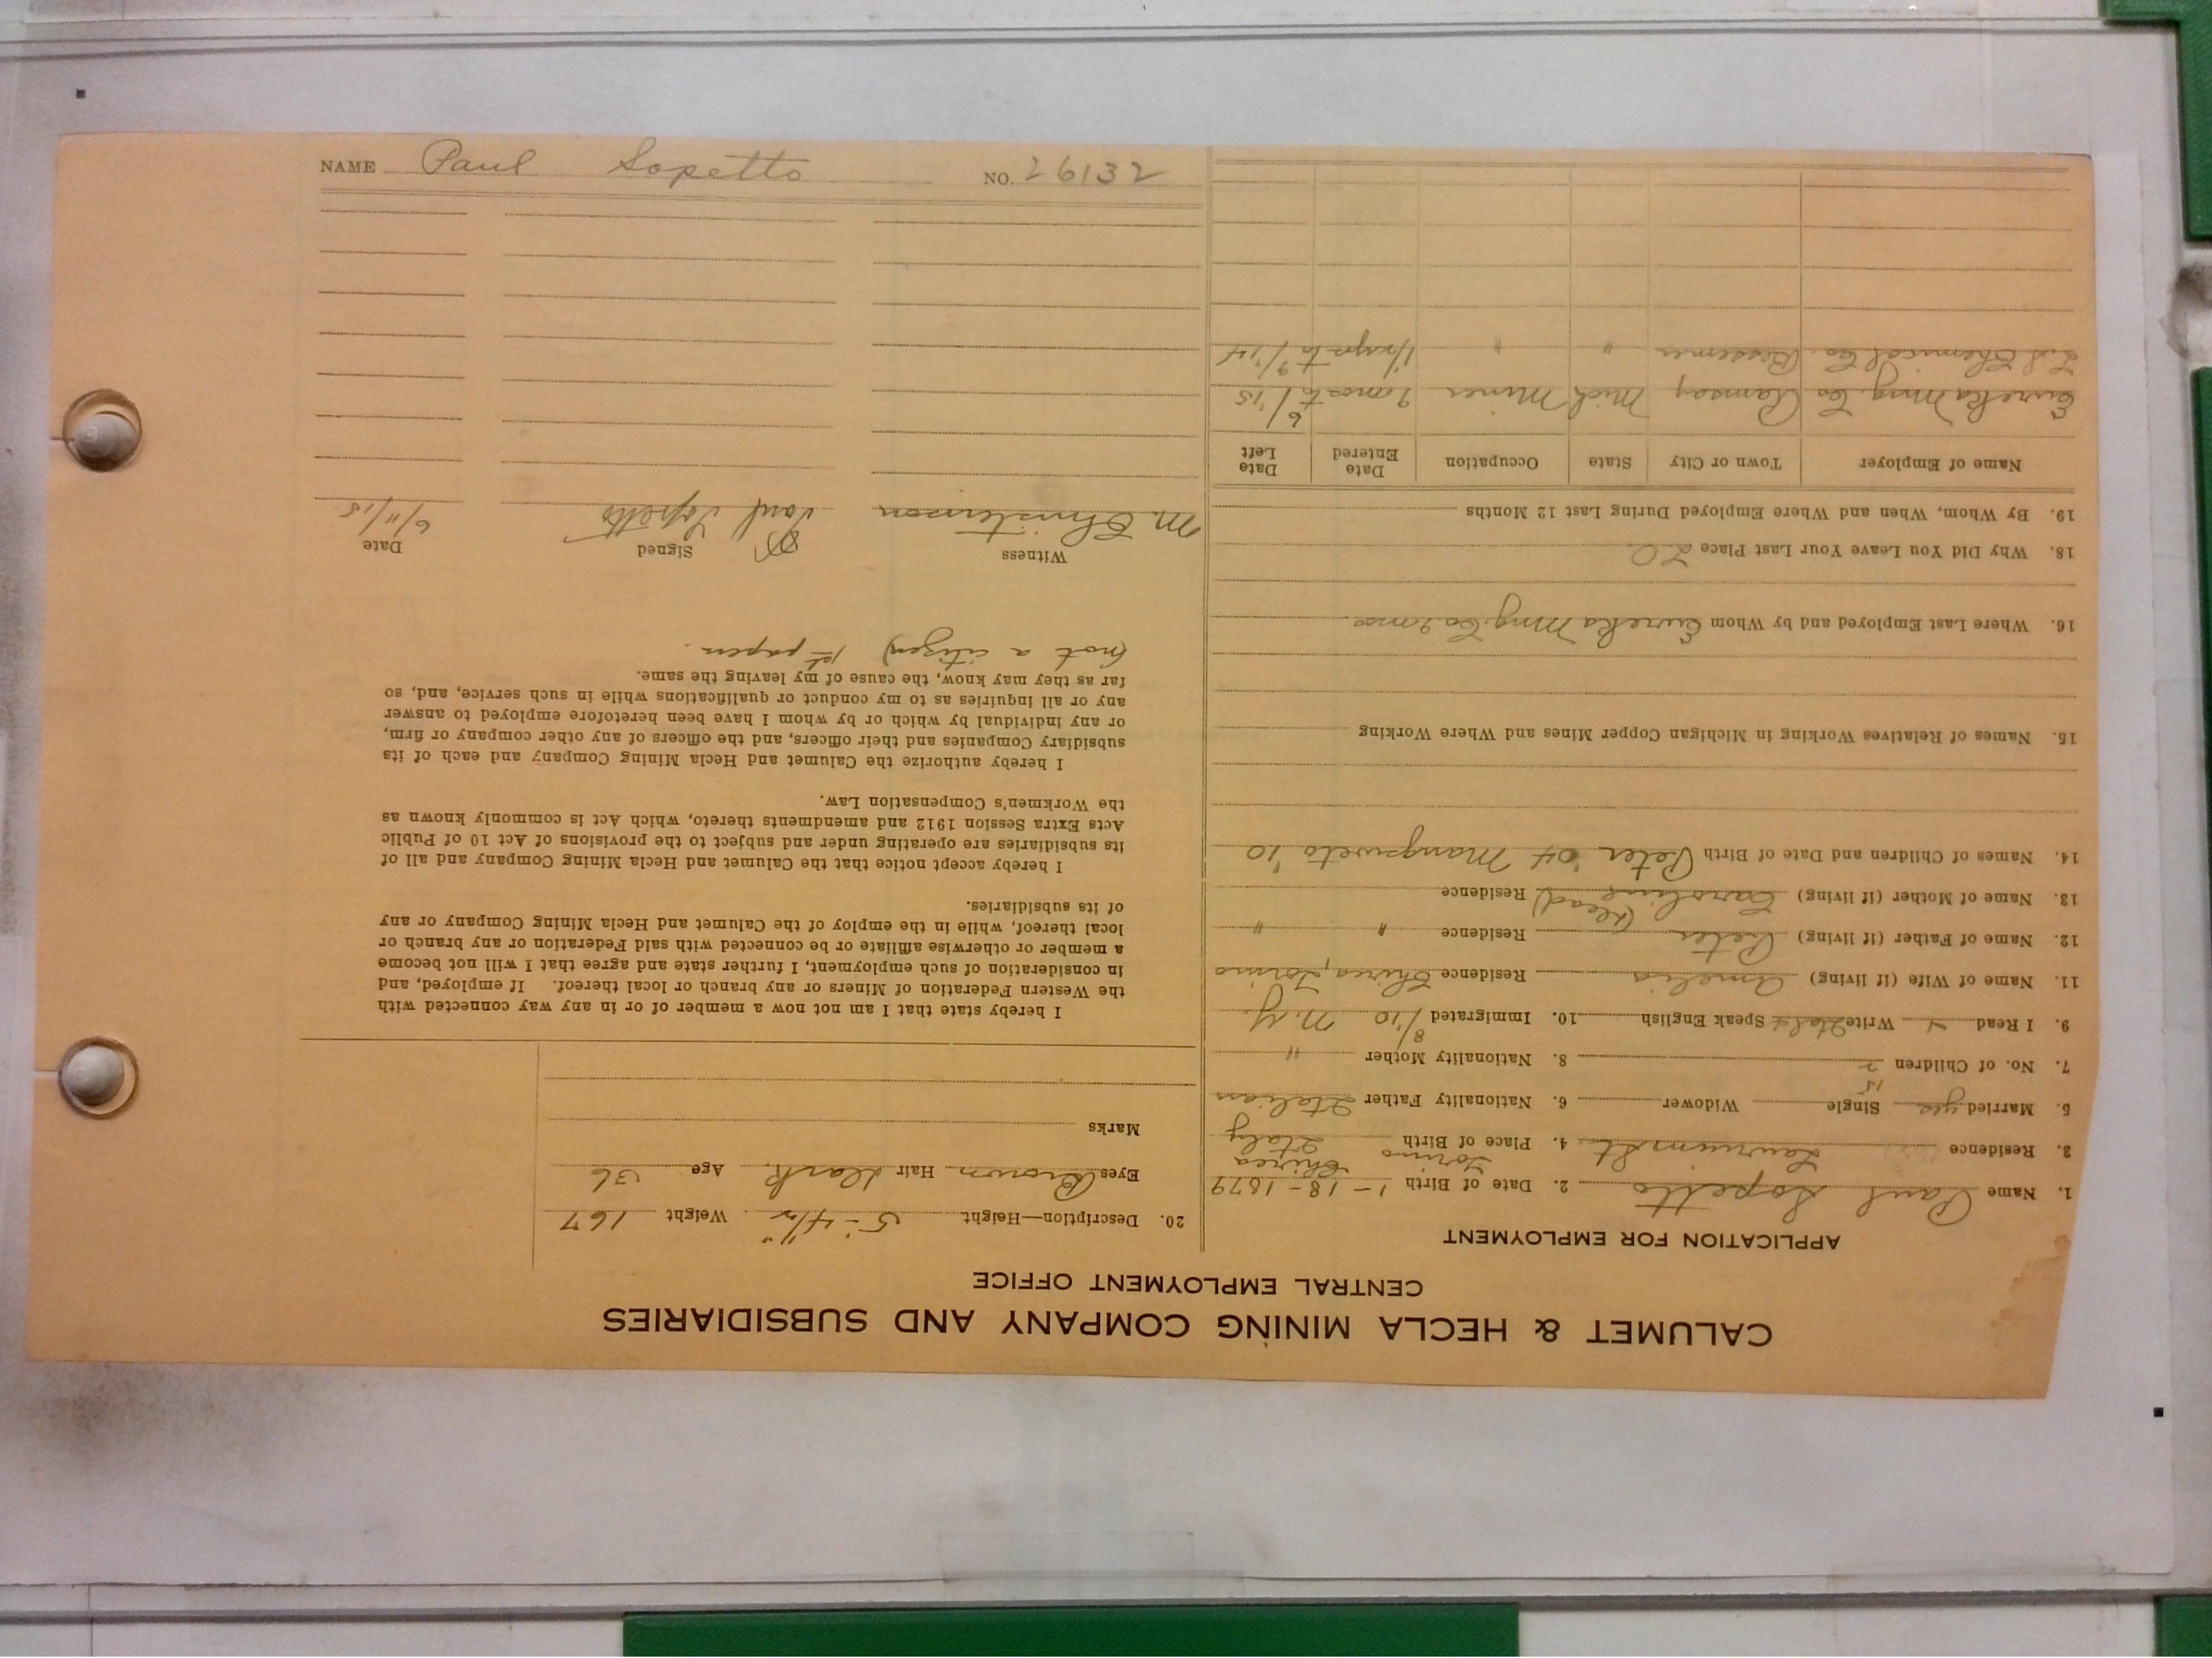 CALUMET & HECLA MINING COMPANY AND SUBSIDIARIES
CENTRAL EMPLOYMENT OFFICE
APPLICATION FOR EMPLOYMENT
1. Name Paul Sopetto 2. Date of Birth 1-18-1879
3. Residence Laurium St. 4. Place of Birth Torino Italy
5. Married yes Single Widower 6. Nationality Father Italian
15
7. No. of Children 2 8. Nationality Mother "
9. I Read Write Ital Speak English 10. Immigrated 8/'10 N.Y.
11. Name of Wife (if living) Amelia Residence Torino
12. Name of Father (if living) Peter Residence " "
13. Name of Mother (if living) Caroline (dead) Residence
14. Names of Children and Date of Birth Peter '04 '10
15. Names of Relatives Working in Michigan Copper Mines and Where Working
16. Where Last Employed and by Whom Eureka Mng. Co 9 mos
18. Why Did You Leave Your Last Place
19. By Whom, When and Where Employed During Last 12 Months
Name of Employer Town or City State Occupation Date Entered Date Left
Eureka Mng. Co Ramsay Mich Miner 9 mos to 6/'15
Chemical Co. Bessemer " " to 9/'14
20. Description—Height 5-4½ Weight 167
Eyes Brown Hair dark. Age 36
Marks
I hereby state that I am not now a member of or in any way connected with
the Western Federation of Miners or any branch or local thereof. If employed, and
in consideration of such employment, I further state and agree that I will not become
a member or otherwise affiliate or be connected with said Federation or any branch or
local thereof, while in the employ of the Calumet and Hecla Mining Company or any
of its subsidiaries.
I hereby accept notice that the Calumet and Hecla Mining Company and all of
its subsidiaries are operating under and subject to the provisions of Act 10 of Public
Acts Extra Session 1912 and amendments thereto, which Act is commonly known as
the Workmen's Compensation Law.
I hereby authorize the Calumet and Hecla Mining Company and each of its
subsidiary Companies and their officers, and the officers of any other company or firm,
or any individual by which or by whom I have been heretofore employed to answer
any or all inquiries as to my conduct or qualifications while in such service, and, so
far as they may know, the cause of my leaving the same.
(not a citizen) 1st papers.
Witness Signed Date
M. Christenson Paul Sopetto 6/11/15.
NAME Paul Sopetto NO. 26132